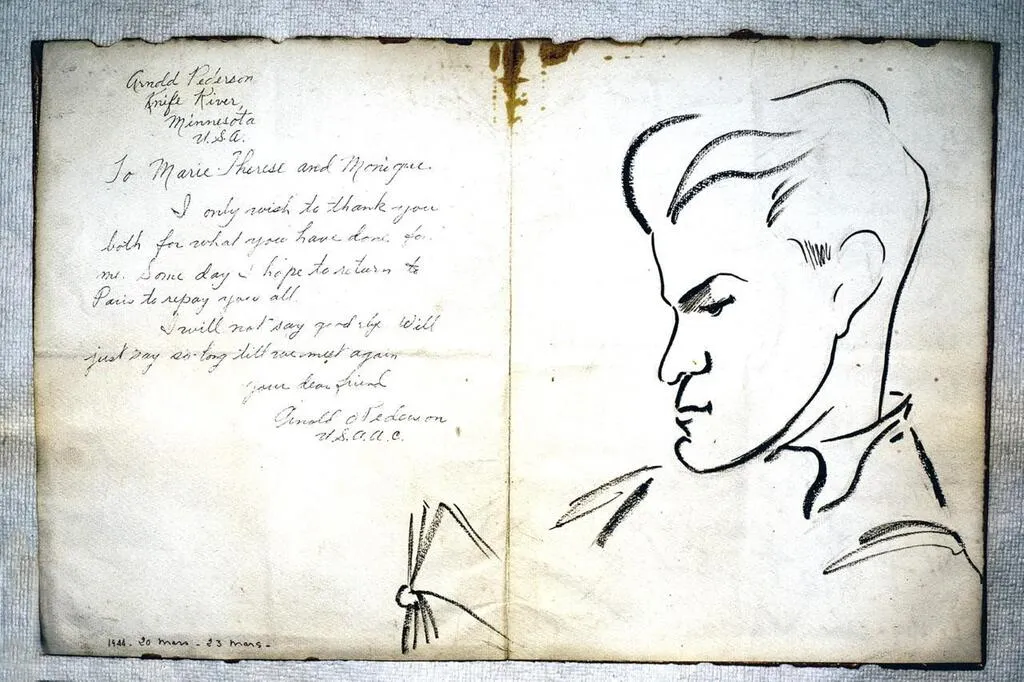 Arnold Pederson
Knife River,
Minnesota
U.S.A.
To Marie-Therese and Monique.
I only wish to thank you
both for what you have done for
me. Some day I hope to return to
Paris to repay you all.
I will not say good-bye. Will
just say so-long till we meet again
your dear friend
Arnold Pederson
U.S.A.A.C.
1944. 20 mars - 23 mars -